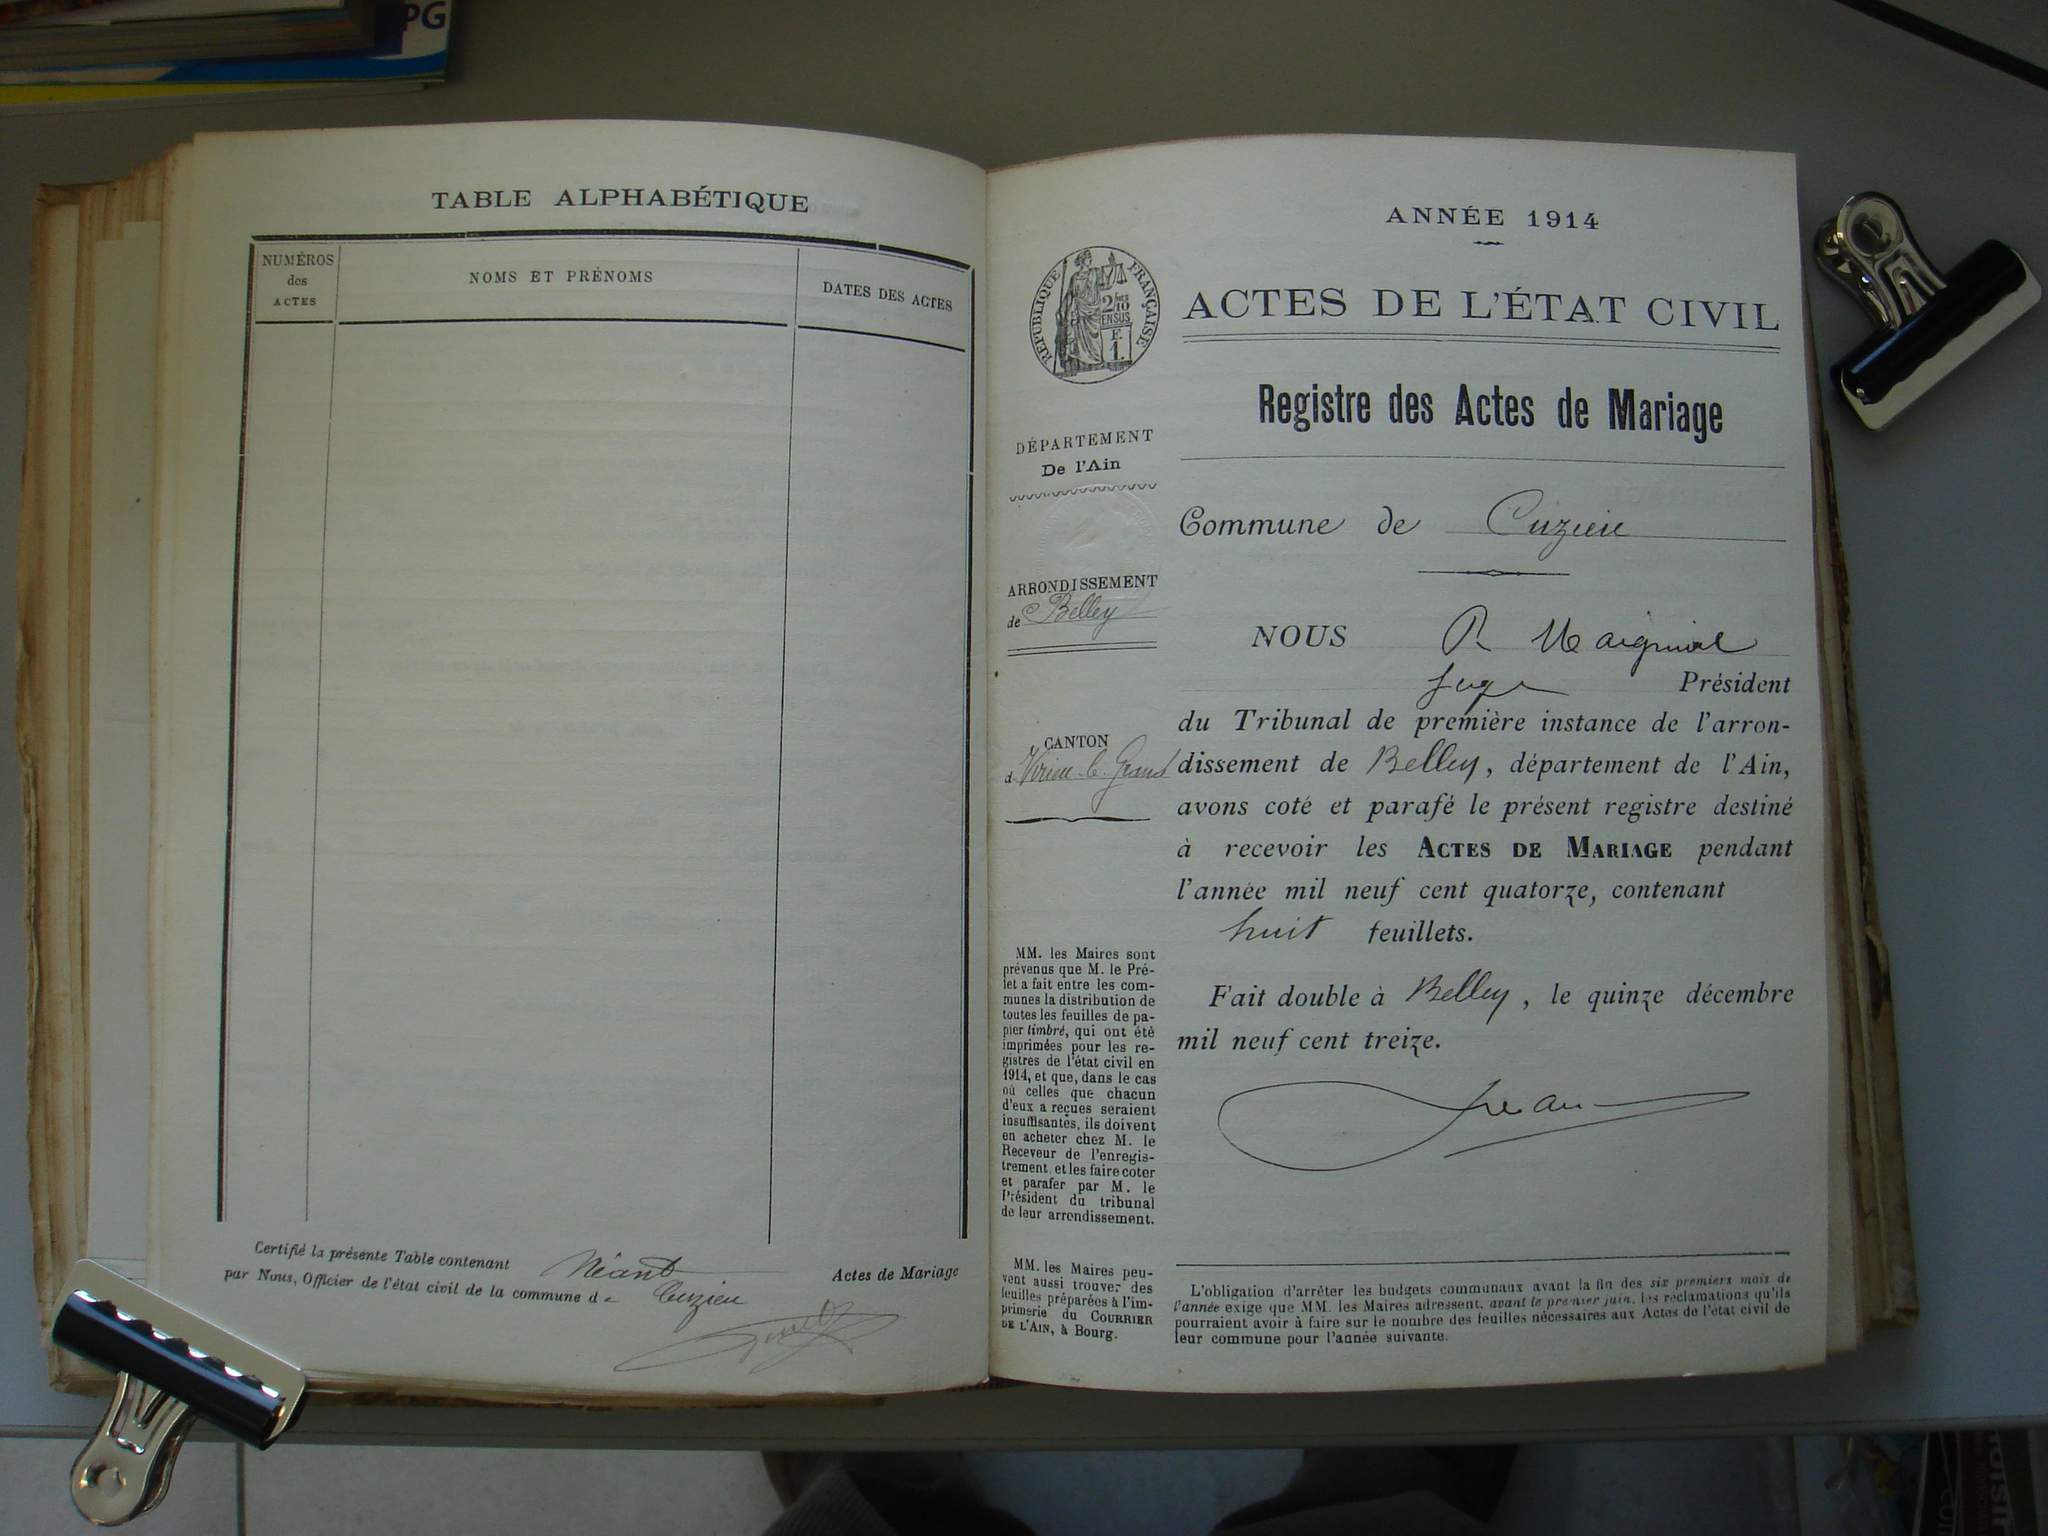 PG
TABLE ALPHABÉTIQUE
NUMÉROS des ACTES
NOMS ET PRÉNOMS
DATES DES ACTES
Certifié la présente Table contenant Néant Actes de Mariage
par Nous, Officier de l'état civil de la commune de Cuzieu
ANNÉE 1914
RÉPUBLIQUE FRANÇAISE
2/10
EN SUS
E.
1.
ACTES DE L'ÉTAT CIVIL
Registre des Actes de Mariage
DÉPARTEMENT
De l'Ain
Commune de Cuzieu
ARRONDISSEMENT
de Belley
CANTON
d Virieu-le-Grand
NOUS R
Juge Président
du Tribunal de première instance de l'arron-
dissement de Belley, département de l'Ain,
avons coté et parafé le présent registre destiné
à recevoir les ACTES DE MARIAGE pendant
l'année mil neuf cent quatorze, contenant
huit feuillets.
Fait double à Belley, le quinze décembre
mil neuf cent treize.
MM. les Maires sont
prévenus que M. le Pré-
fet a fait entre les com-
munes la distribution de
toutes les feuilles de pa-
pier timbré, qui ont été
imprimées pour les re-
gistres de l'état civil en
1914, et que, dans le cas
où celles que chacun
d'eux a reçues seraient
insuffisantes, ils doivent
en acheter chez M. le
Receveur de l'enregis-
trement et les faire coter
et parafer par M. le
Président du tribunal
de leur arrondissement.
MM. les Maires peu-
vent aussi trouver des
feuilles préparées à l'im-
primerie du COURRIER
DE L'AIN, à Bourg.
L'obligation d'arrêter les budgets communaux avant la fin des six premiers mois de
l'année exige que MM. les Maires adressent, avant le premier juin, les réclamations qu'ils
pourraient avoir à faire sur le nombre des feuilles nécessaires aux Actes de l'état civil de
leur commune pour l'année suivante.